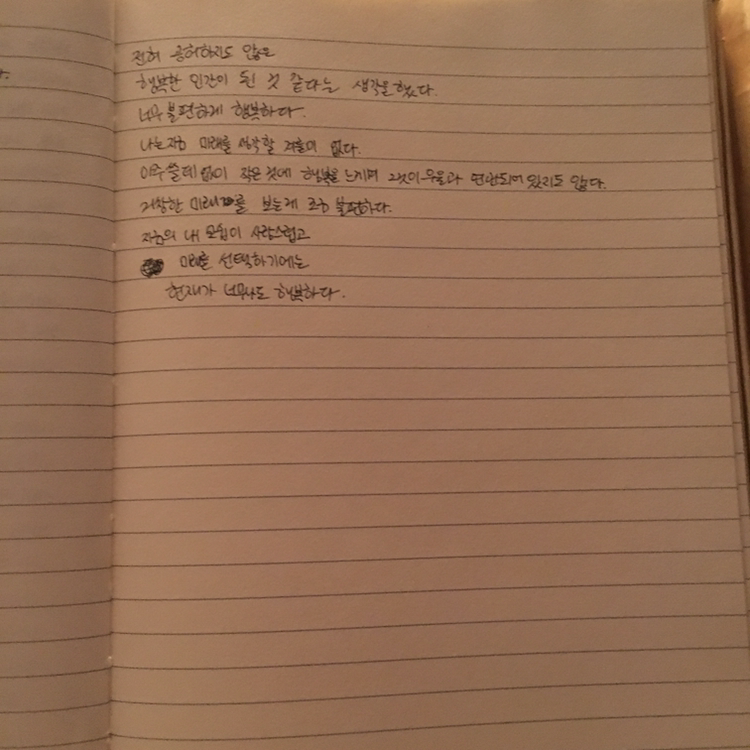 전혀 공허하지도 않은
행복한 인간이 된 것 같다는 생각을 했다.
너무 불편하게 행복하다.
나는 지금 미래를 생각할 겨를이 없다.
아주 쓸데없이 작은 것에 행복을 느끼며 그것이 우울과 연관되어 있지도 않다.
거창한 미래를 보는게 조금 불편하다.
지금의 내 모습이 사랑스럽고
미래를 선택하기에는
현재가 너무나도 행복하다.